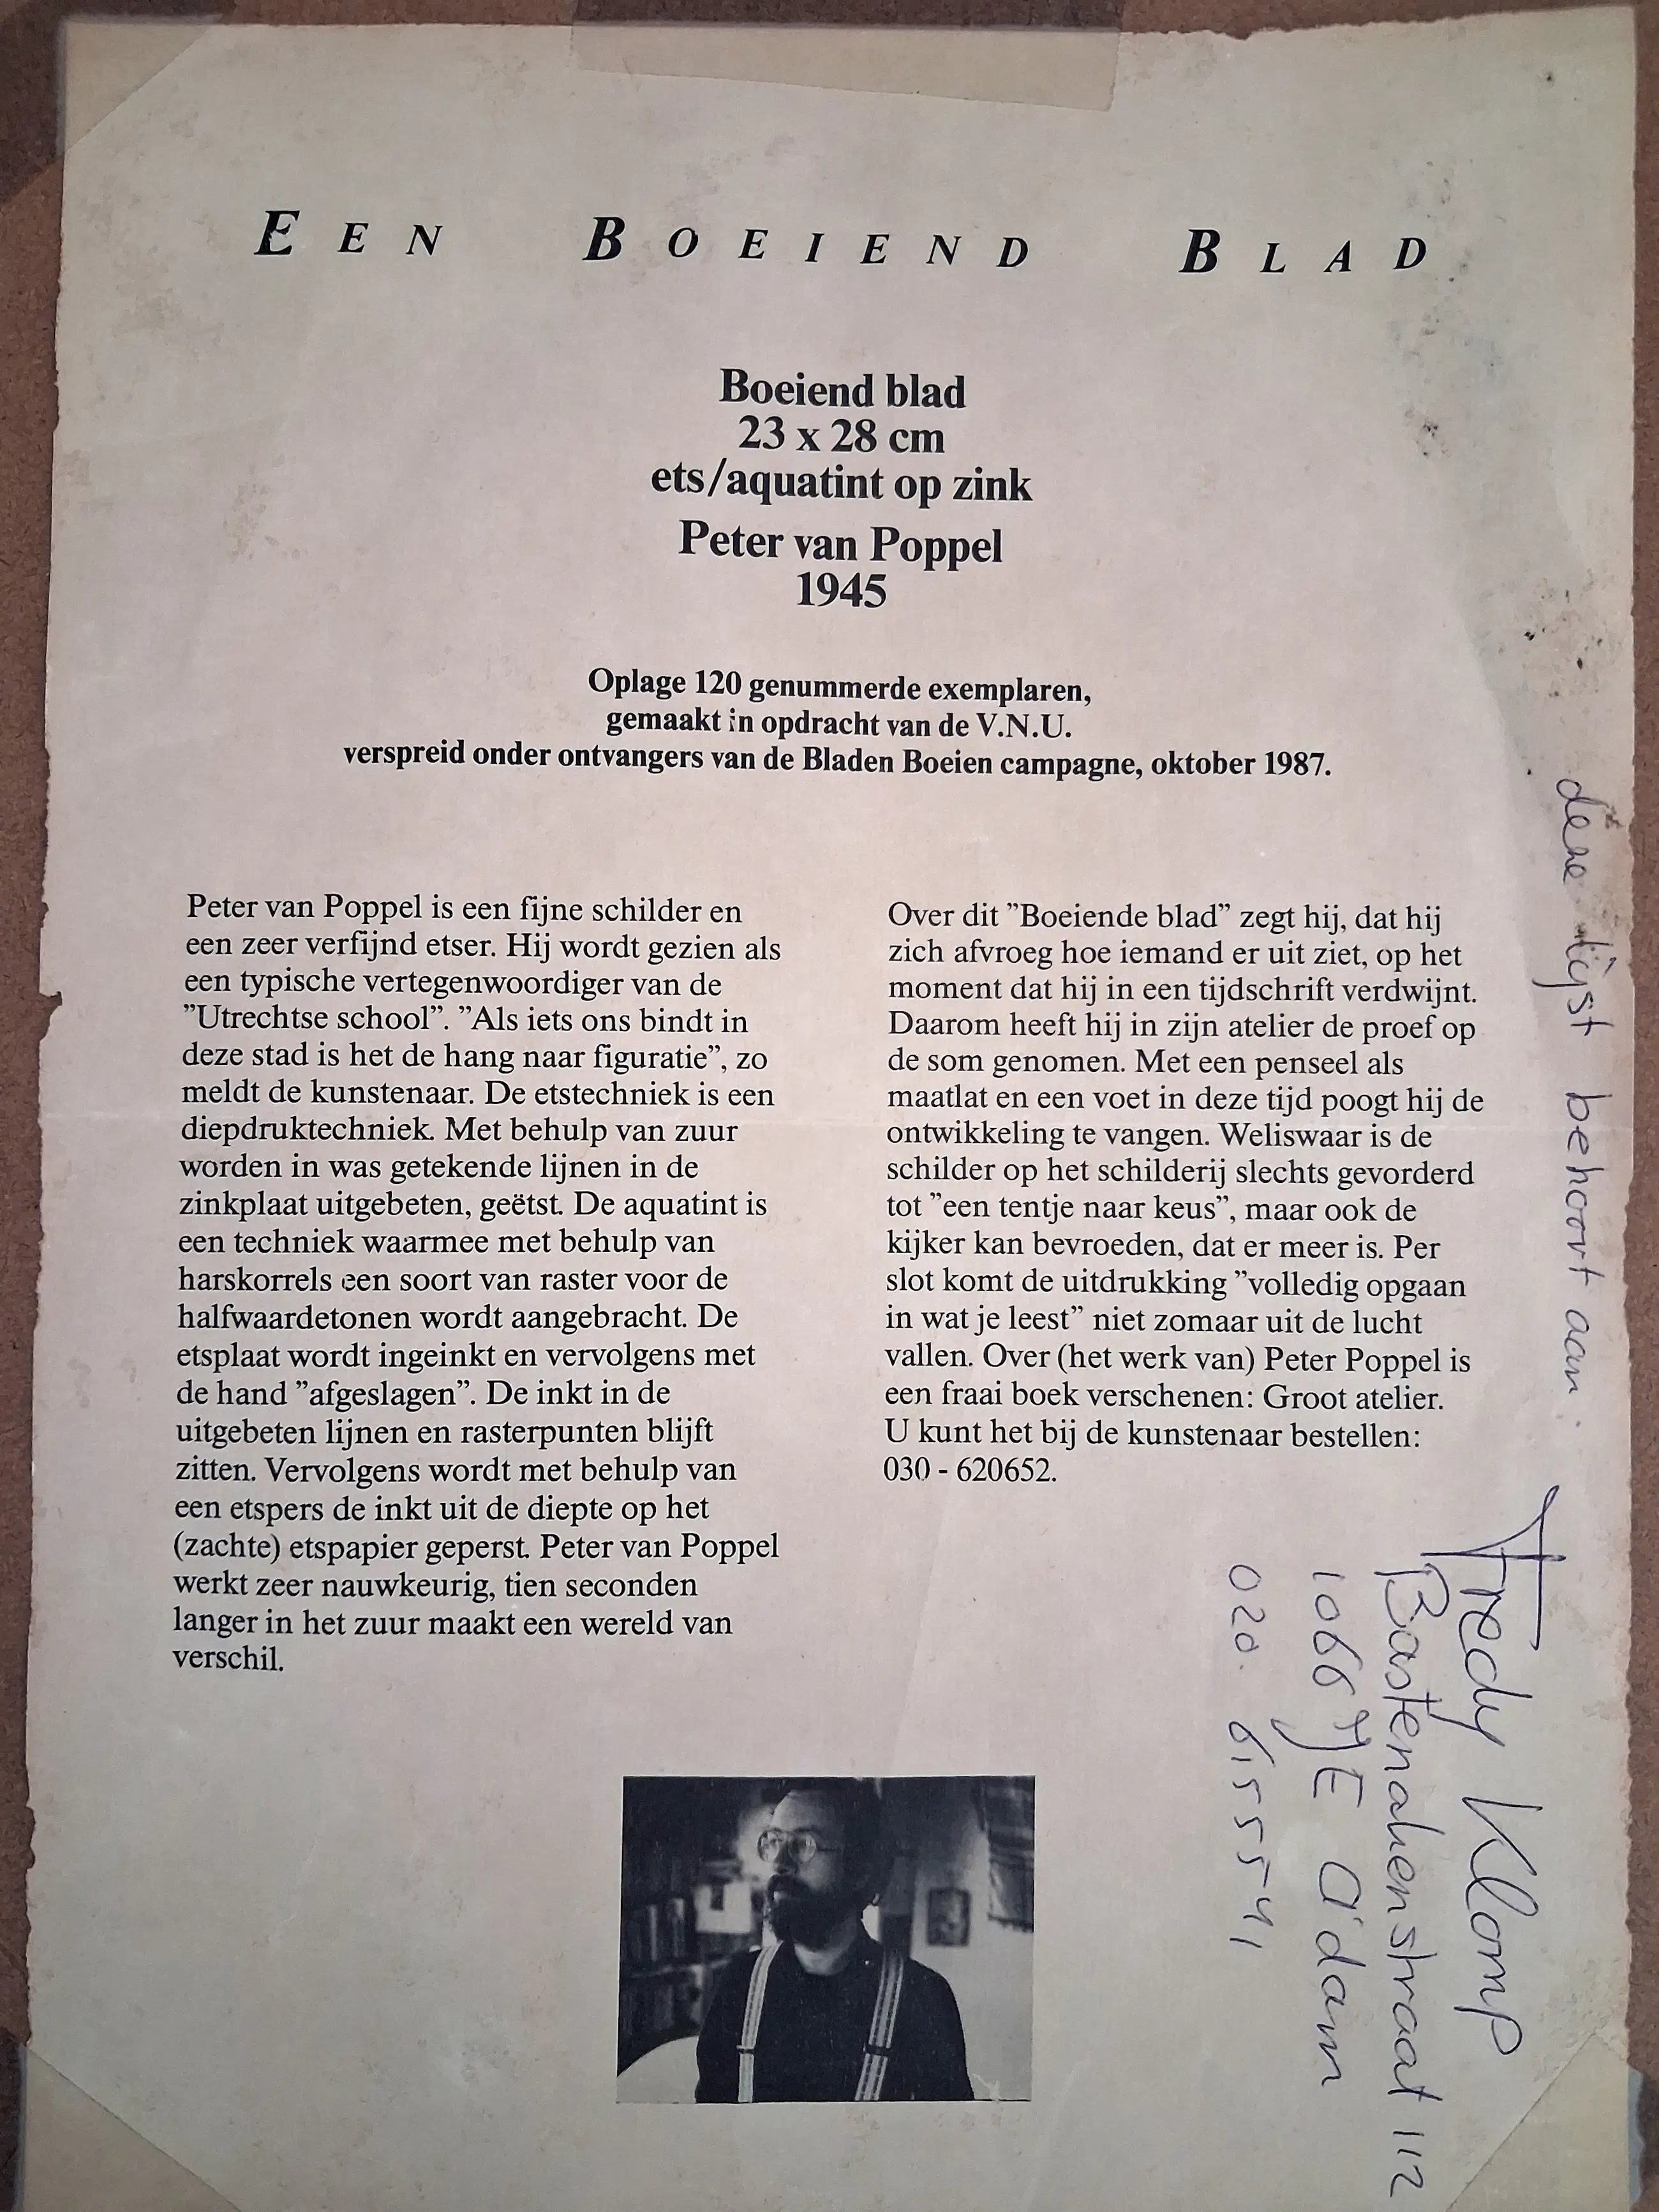 EEN BOEIEND BLAD
Boeiend blad
23 x 28 cm
ets/aquatint op zink
Peter van Poppel
1945
Oplage 120 genummerde exemplaren,
gemaakt in opdracht van de V.N.U.
verspreid onder ontvangers van de Bladen Boeien campagne, oktober 1987.
Peter van Poppel is een fijne schilder en
een zeer verfijnd etser. Hij wordt gezien als
een typische vertegenwoordiger van de
”Utrechtse school”. ”Als iets ons bindt in
deze stad is het de hang naar figuratie”, zo
meldt de kunstenaar. De etstechniek is een
diepdruktechniek. Met behulp van zuur
worden in was getekende lijnen in de
zinkplaat uitgebeten, geëtst. De aquatint is
een techniek waarmee met behulp van
harskorrels een soort van raster voor de
halfwaardetonen wordt aangebracht. De
etsplaat wordt ingeinkt en vervolgens met
de hand ”afgeslagen”. De inkt in de
uitgebeten lijnen en rasterpunten blijft
zitten. Vervolgens wordt met behulp van
een etspers de inkt uit de diepte op het
(zachte) etspapier geperst. Peter van Poppel
werkt zeer nauwkeurig, tien seconden
langer in het zuur maakt een wereld van
verschil.
Over dit ”Boeiende blad” zegt hij, dat hij
zich afvroeg hoe iemand er uit ziet, op het
moment dat hij in een tijdschrift verdwijnt.
Daarom heeft hij in zijn atelier de proef op
de som genomen. Met een penseel als
maatlat en een voet in deze tijd poogt hij de
ontwikkeling te vangen. Weliswaar is de
schilder op het schilderij slechts gevorderd
tot ”een tentje naar keus”, maar ook de
kijker kan bevroeden, dat er meer is. Per
slot komt de uitdrukking ”volledig opgaan
in wat je leest” niet zomaar uit de lucht
vallen. Over (het werk van) Peter Poppel is
een fraai boek verschenen: Groot atelier.
U kunt het bij de kunstenaar bestellen:
030 - 620652.
deze lijst behoort aan.
Fredy Klomp
Bastenakenstraat 112
1066 JE A'dam
020 6155541